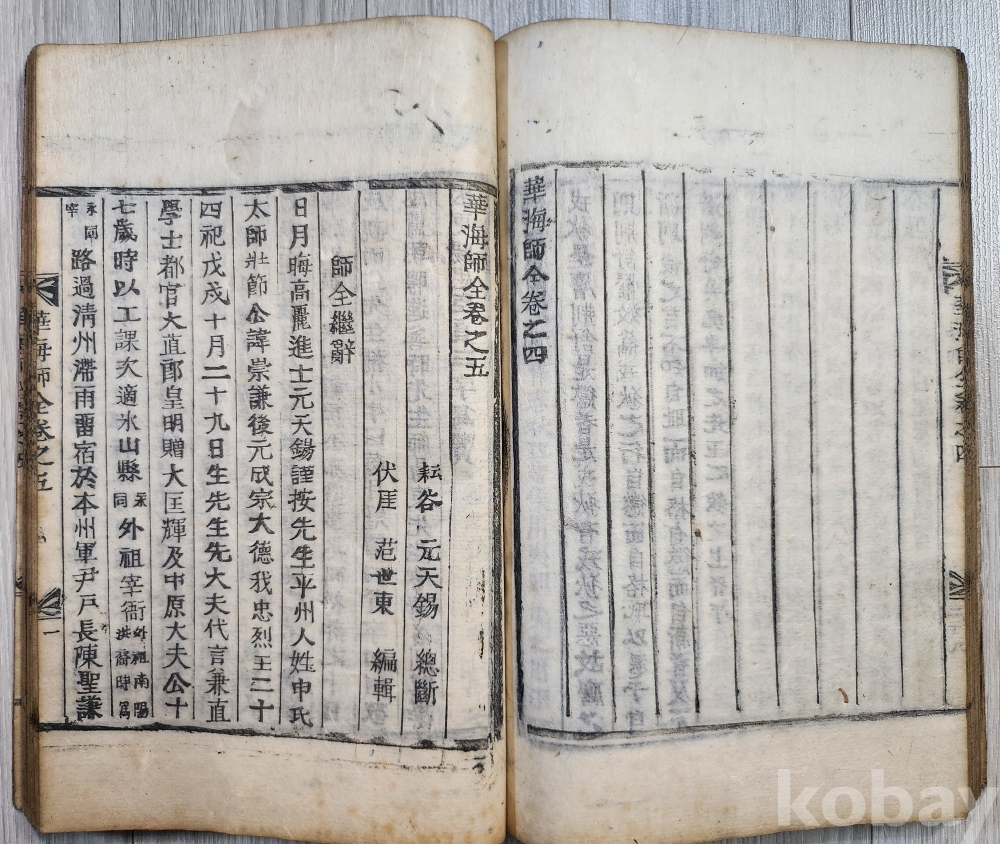 華海師全卷之四
華海師全卷之四
華海師全卷之五
耘谷 元天錫 總斷
伏厓 范世東 編輯
師全繼辭
日月晦高麗進士元天錫謹按先生平州人姓申氏
太師壯節公諱崇謙後元成宗大德我忠烈王二十
四祀戊戌十月二十九日生先生先大夫代言兼直
學士都官大直郎皇明贈大匡輝及中原大夫公十
七歲時以工課次適永山縣 永同 外祖宰衙 外祖南陽洪裔時爲
永同宰 路過清州滯雨留宿於本州軍尹戶長陳聖謙
華海師全卷之五
一
kobay